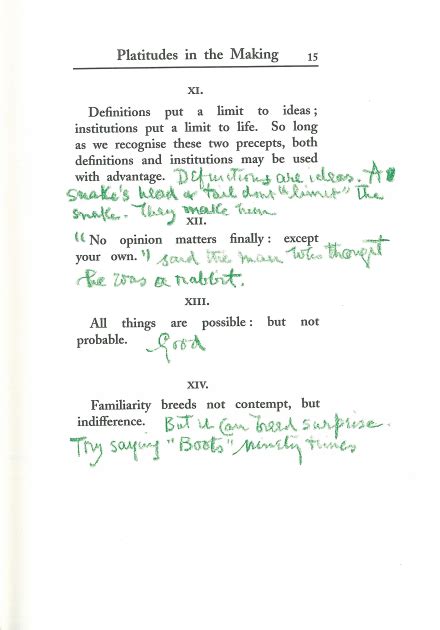 Platitudes in the Making 15
XI.
Definitions put a limit to ideas;
institutions put a limit to life. So long
as we recognise these two precepts, both
definitions and institutions may be used
with advantage. Definitions are ideas. A
snake's head & tail dont "limit" the
snake. They make him
XII.
"No opinion matters finally: except
your own." said the man who thought
he was a rabbit.
XIII.
All things are possible: but not
probable. Good
XIV.
Familiarity breeds not contempt, but
indifference. But it can breed surprise.
Try saying "Boots" ninety times